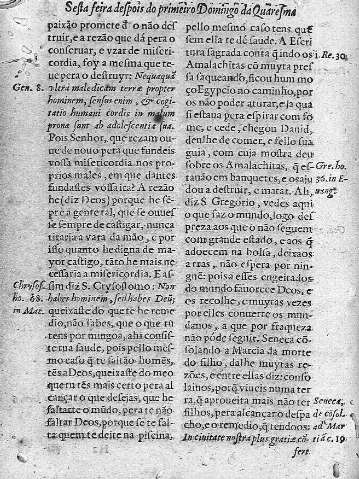 Sesta feira despois do primeiro Domingo da Quaresma
paixão promete q̃ o não des
truir, e a rezão que dá pera o
conseruar, e vzar de miseri-
cordia, foy a mesma que te-
ue pera o destruyr: Nequaquã
Gen. 8.
vltra maledicam terræ propter
hominem, sensus enim, & cogi-
tatio humani cordis in malum
prona sunt ab adolescentia sua.
Pois Senhor, que rezam ou-
ue de nouo pera que fundeis
vossa misericordia, nos pro-
prios males, em que dantes
fundasses vossa ira? A rezão
he (diz Deos) porque he se-
pre a gente ral, que se ouuesse
se sempre de castigar, nunca
tiraria a vara da mão, e por
isso quanto he digna de ma-
yor castigo, tãto he mais ne-
cessaria a misericordia. E as-
Chrysos.
sim diz S. Crysostomo: Non
ho. 68.
habeo hominem, sed habes Deũ;
in Mat.
queixaste do que te he reme-
dio, não sabes, que o que tu
tens por mingoa, ahi consis-
te tua saude, pois pello mes-
mo caso q̃ te faltão homẽs,
tẽs a Deos, queixaste do meo
quem tẽs mais certo pera al-
cançar o que desejas, que he
faltarte o mũdo, pera te não
faltar Deos, porque se te fal-
ta quem te deite na piscina,
pello mesmo caso tens quẽ
sem ella te dê saude. A Escri
tura sagrada conta q̃ indo os
1. Re. 30.
Amalachitas cõ muyta pres
sa saqueando, ficou hum mo
ço Egypcio no caminho, por
os não poder aturar, e ja qua
si estaua pera espirar com fo
me, e sede, chegou Dauid,
deulhe de comer, e fello sua
guia, com cuja mostra deu
sobre os Amalachitas, q̃ es-
Gre. ho.
tauão em banquetes, e os aju
36. in E-
dou a destruir, e matar. Ah,
uãg.
diz S. Gregorio, vedes aqui
o que faz o mundo, logo des
preza aos que o não seguem
com grande estado, e aos q̃
adoecem na bolsa, deixaos
atras, não espera por nin-
guẽ: pois a esses engeitados
do mundo fauorece Deos, e
os recolhe, e muytas vezes
por elles conuerte os mun-
danos, a que por fraqueza
não pôde seguir. Seneca cõ-
solando a Marcia da morte
do filho, dalhe muytas re-
zões, e entre ellas diz: conso
laiuos, porq̃ viueis numa ter
ra, q̃ aproueita mais não ter
Seneca,
filhos, pera alcançar o despa
de cõsol.
cho, e o remedio, q̃ tendoos:
ad Mar
In ciuitate nostra plus gratiæ cõ-
tiã c. 19
fert